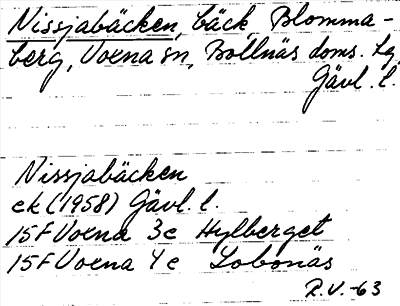 Nissjabäcken, bäck, Blomma-
berg, Voxna sn, Bollnäs doms. lg
Gävl. l.
Nissjabäcken
ek (1958) Gävl. l.
15F Voxna 3e Hylberget
15F Voxna 4e Lobonäs
R.V. -63